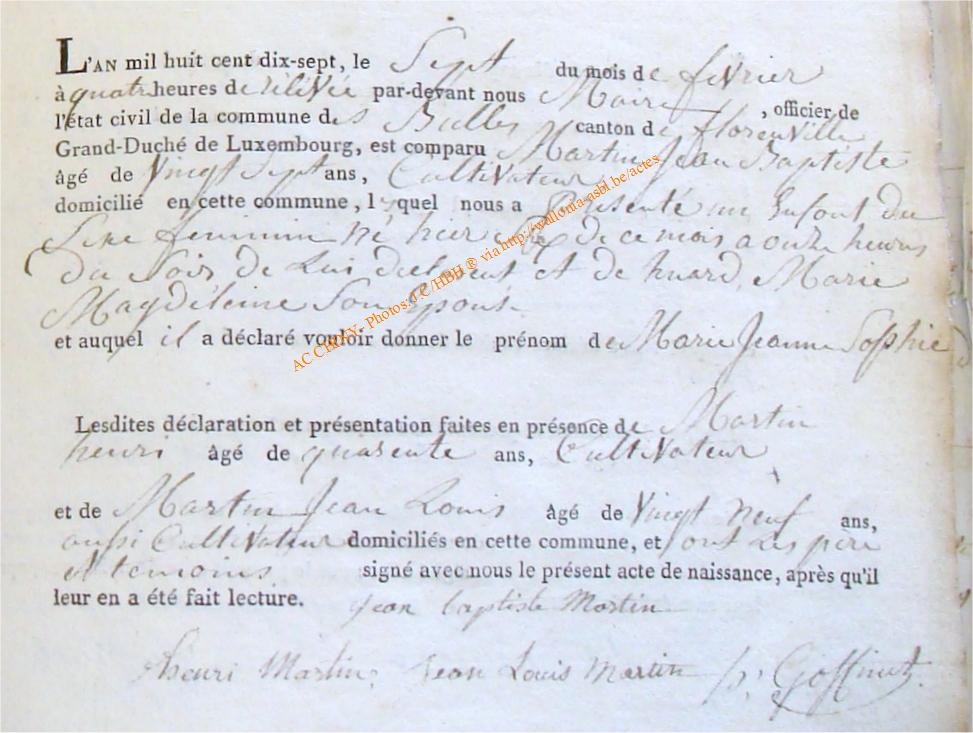 L'AN mil huit cent dix-sept, le Sept du mois de fevrier
à quatre heures de rélévée par-devant nous Maire , officier de
l'état civil de la commune des Bulles canton de florenville
Grand-Duché de Luxembourg, est comparu Martin Jean Baptiste
âgé de Vingt Sept ans, Cultivateur
domicilié en cette commune, lequel nous a présenté un Enfant du
Sexe feminin né hier de ce mois a onze heures
du Soir de Lui declarent et de huard, Marie
Magdéleine Son Epouse
et auquel il a déclaré vouloir donner le prénom de Marie Jeanne Sophie
Lesdites déclaration et présentation faites en présence de Martin
henri âgé de quarente ans, Cultivateur
et de Martin Jean Louis âgé de Vingt neuf ans,
aussi Cultivateur domiciliés en cette commune, et ont Les père
et temoins signé avec nous le présent acte de naissance, après qu'il
leur en a été fait lecture. jean baptiste Martin
henri Martin jean Louis Martin p. Goffinet
AC CHINY - Photos J.C/HBH ® via http://wallonia-asbl.be/actes